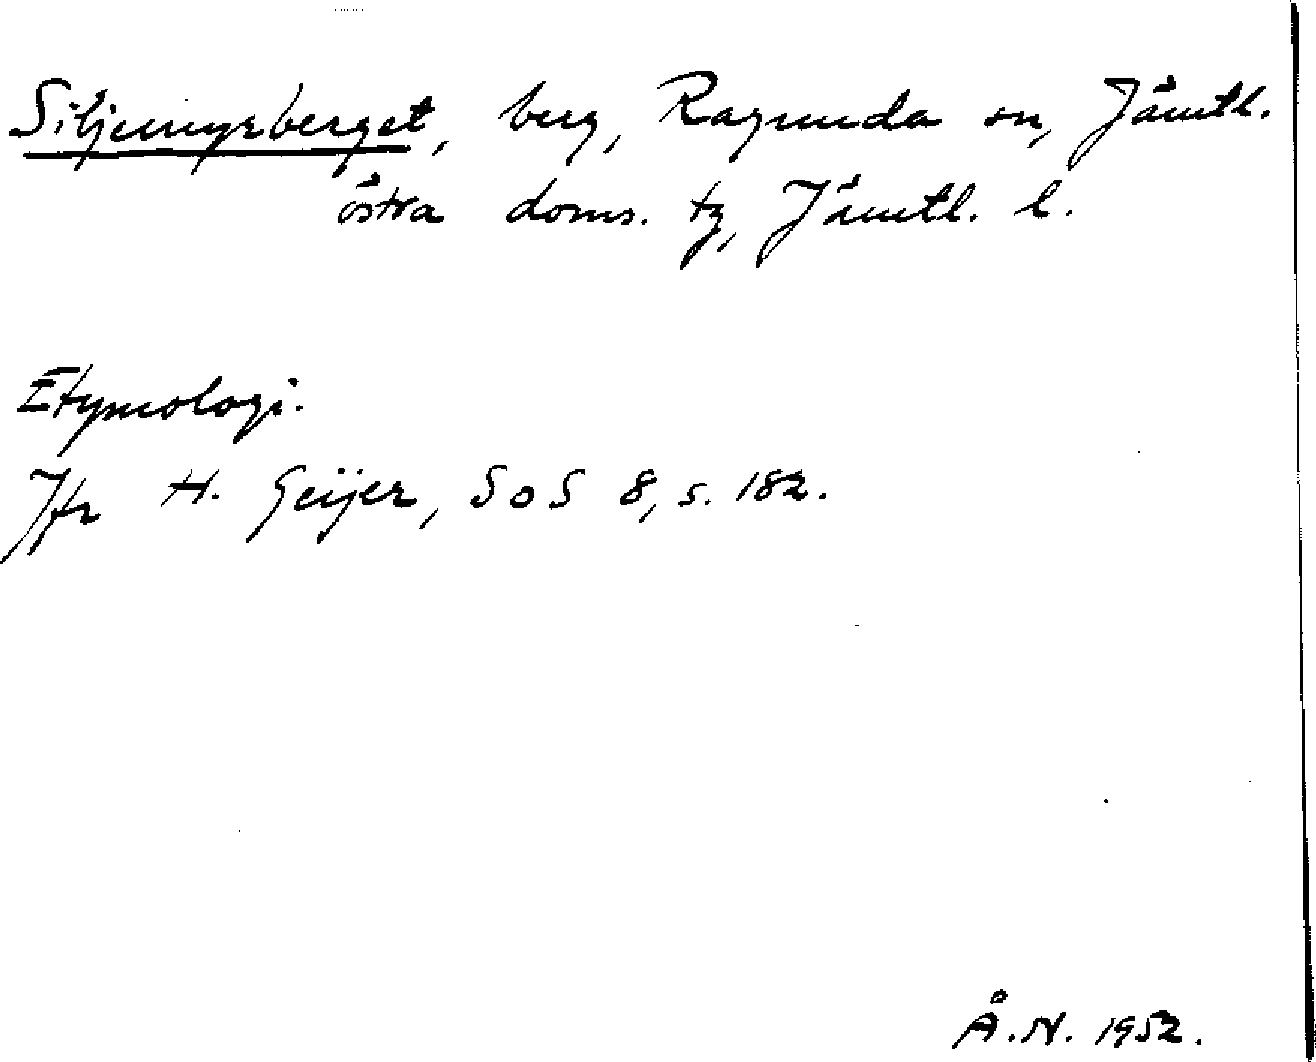 Siljemyrberget, berg, Ragunda sn, Jämtl.
östra doms. tg, Jämtl. l.
Etymologi.
Jfr H. Geijer, SoS 8, s. 182.
Å.N. 1952.